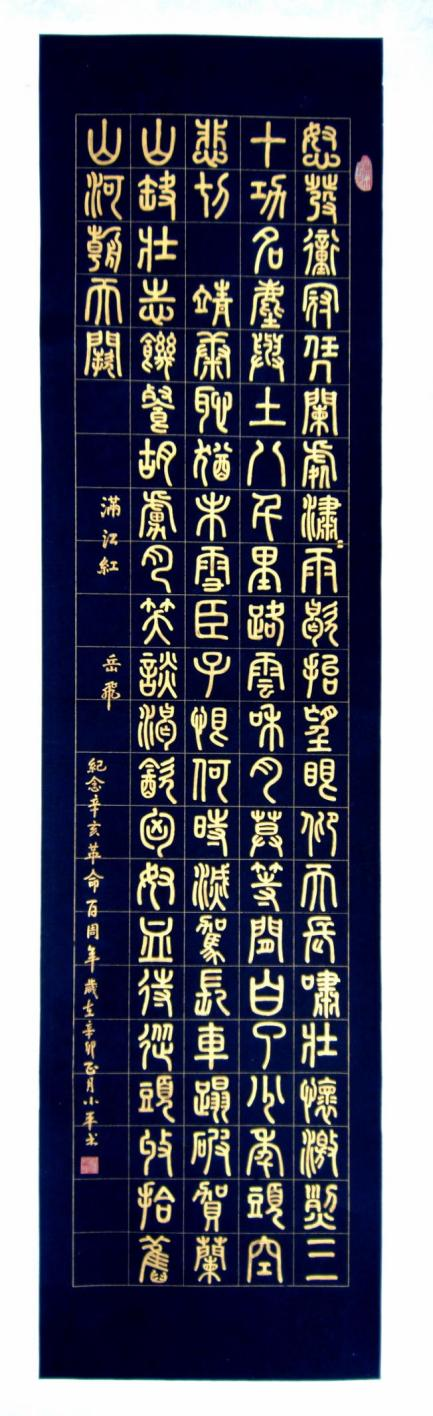 怒發衝冠凭闌處潚〻雨歇抬望眼仰天長嘯壯懷激烈三
十功名塵與土八千里路雲和月莫等閒白了少年頭空
悲切 靖康恥猶未雪臣子恨何時滅駕長車蹋破賀蘭
山缺壯志饑餐胡虜肉笑談渴飲匈奴血待從頭收拾舊
山河朝天闕
滿江紅 岳飛
紀念辛亥革命百周年歲在辛卯正月小書